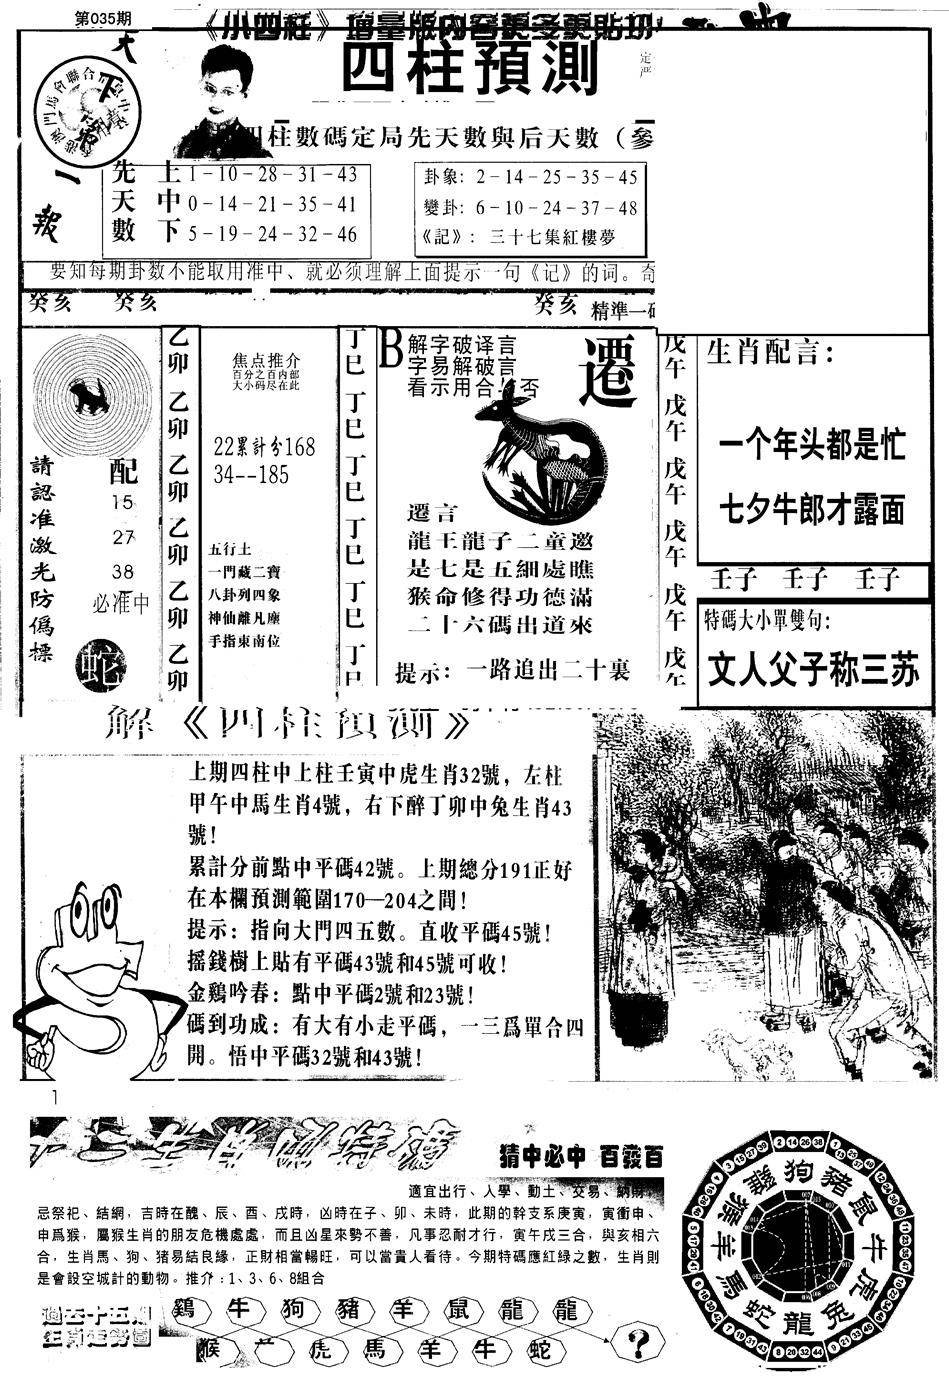 第035期
《小四柱》增量版内容更多更貼切
四柱預測
大
下
一
報
柱數碼定局先天數與后天數（參
先天數
上 1－10－28－31－43
中 0－14－21－35－41
下 5－19－24－32－46
卦象：2－14－25－35－45
變卦：6－10－24－37－48
《記》：三十七集紅樓夢
要知每期卦数不能取用准中、就必须理解上面提示一句《记》的词。奇
癸亥 癸亥 癸亥 精準一
請認准激光防僞標
配
15
27
38
必准中
蛇
乙卯 乙卯 乙卯 乙卯 乙卯 乙卯
焦点推介
百分之百内部
大小码尽在此
22累計兮168
34--185
五行土
一門藏二寶
八卦列四象
神仙離凡塵
手指東南位
丁巳 丁巳 丁巳 丁巳 丁巳 丁巳
B
解字破译言
字易解破言
看示用合与否
遷
遷言
龍王龍子二童邀
是七是五細處瞧
猴命修得功德滿
二十六碼出道來
提示：一路追出二十裏
戊午 戊午 戊午 戊午 戊午 戊午
生肖配言：
一个年头都是忙
七夕牛郎才露面
壬子 壬子 壬子
特碼大小單雙句：
文人父子称三苏
解《四柱預測》
上期四柱中上柱壬寅中虎生肖32號，左柱
甲午中馬生肖4號，右下醉丁卯中兔生肖43
號！
累計分前點中平碼42號。上期總分191正好
在本欄預測範圍170—204之間！
提示：指向大門四五數。直收平碼45號！
摇錢樹上貼有平碼43號和45號可收！
金鷄吟春：點中平碼2號和23號！
碼到功成：有大有小走平碼，一三爲單合四
開。悟中平碼32號和43號！
1
猜中必中 百發百
適宜出行、入學、動土、交易、納財
忌祭祀、結網，吉時在醜、辰、酉、戌時，凶時在子、卯、未時，此期的幹支系庚寅，寅衝申、
申爲猴，屬猴生肖的朋友危機處處，而且凶星來勢不善，凡事忍耐才行，寅午戌三合，與亥相六
合，生肖馬、狗、猪易結良緣，正財相當暢旺，可以當貴人看待。今期特碼應紅緑之數，生肖則
是會設空城計的動物。推介：1、3、6、8組合
過去十五期
生肖走勢圖
鷄 牛 狗 豬 羊 鼠 龍 龍
猴 虎 馬 羊 牛 蛇 ?
狗 豬 鼠 牛 虎 兔 龍 蛇 馬 羊 猴 雞